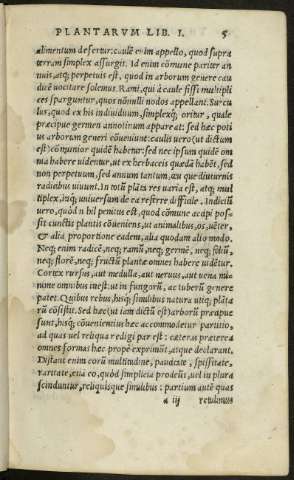 PLANTARVM LIB. I. 5
alimentum desertur: caulē enim appello, quod supra
terram simplex assurgit. Id enim cōmune pariter an
nuis, atq; perpetuis est, quod in arborum genere cau
dicē uocitare solemus. Rami, qui à caule fissi multipli
ces sparguntur, quos nōnulli nodos appellant. Surcu
lus, quod ex his indiuiduum, simplexq; oritur, quale
præcipue germen annotinum appareat: sed hæc poti
us arborum generi cōueniunt: caulis uero (ut dictum
est) cōmunior quidē habetur: sed nec ipsum quidē om
nia habere uidentur, ut ex herbaceis quædā habēt, sed
non perpetuum, sed annuum tantum, aut quæ diuturnis
radicibus uiuunt. In totū plāta res uaria est, atq; mul
tiplex, inq; uniuersum de ea referre difficile. Indiciū
vero, quòd n hil penitus est, quod cōmune accipi pos-
sit cunctis plantis cōueniens, ut animalibus, os, uēter,
& alia proportione eadem, alia quodam alio modo.
Neq; enim radicē, neq; ramū, neq; germē, neq; foliū,
neq; florē, neq; fructū plantæ omnes habere uidētur.
Cortex rursus, aut medulla, aut neruus, aut uena mi-
nime omnibus inest: ut in fungorū, ac tuberū genere
patet. Quibus rebus, hisq; similibus natura utiq; plāta
rū cōsistit. Sed hæc (ut iam dictū est) arborū præcipue
sunt, hisq; cōuenientius hæc accommodetur partitio,
ad quas uel reliqua redigi par est: cæteras præterea
omnes formas hæc propè exprimūt, atque declarant.
Distant enim eorū multitudine, paucitate, spissitate,
raritate, et iā eo, quòd simplicia prodeūt, uel in plura
scinduntur, reliquisque similibus: partium autē quas
a iij retulimus